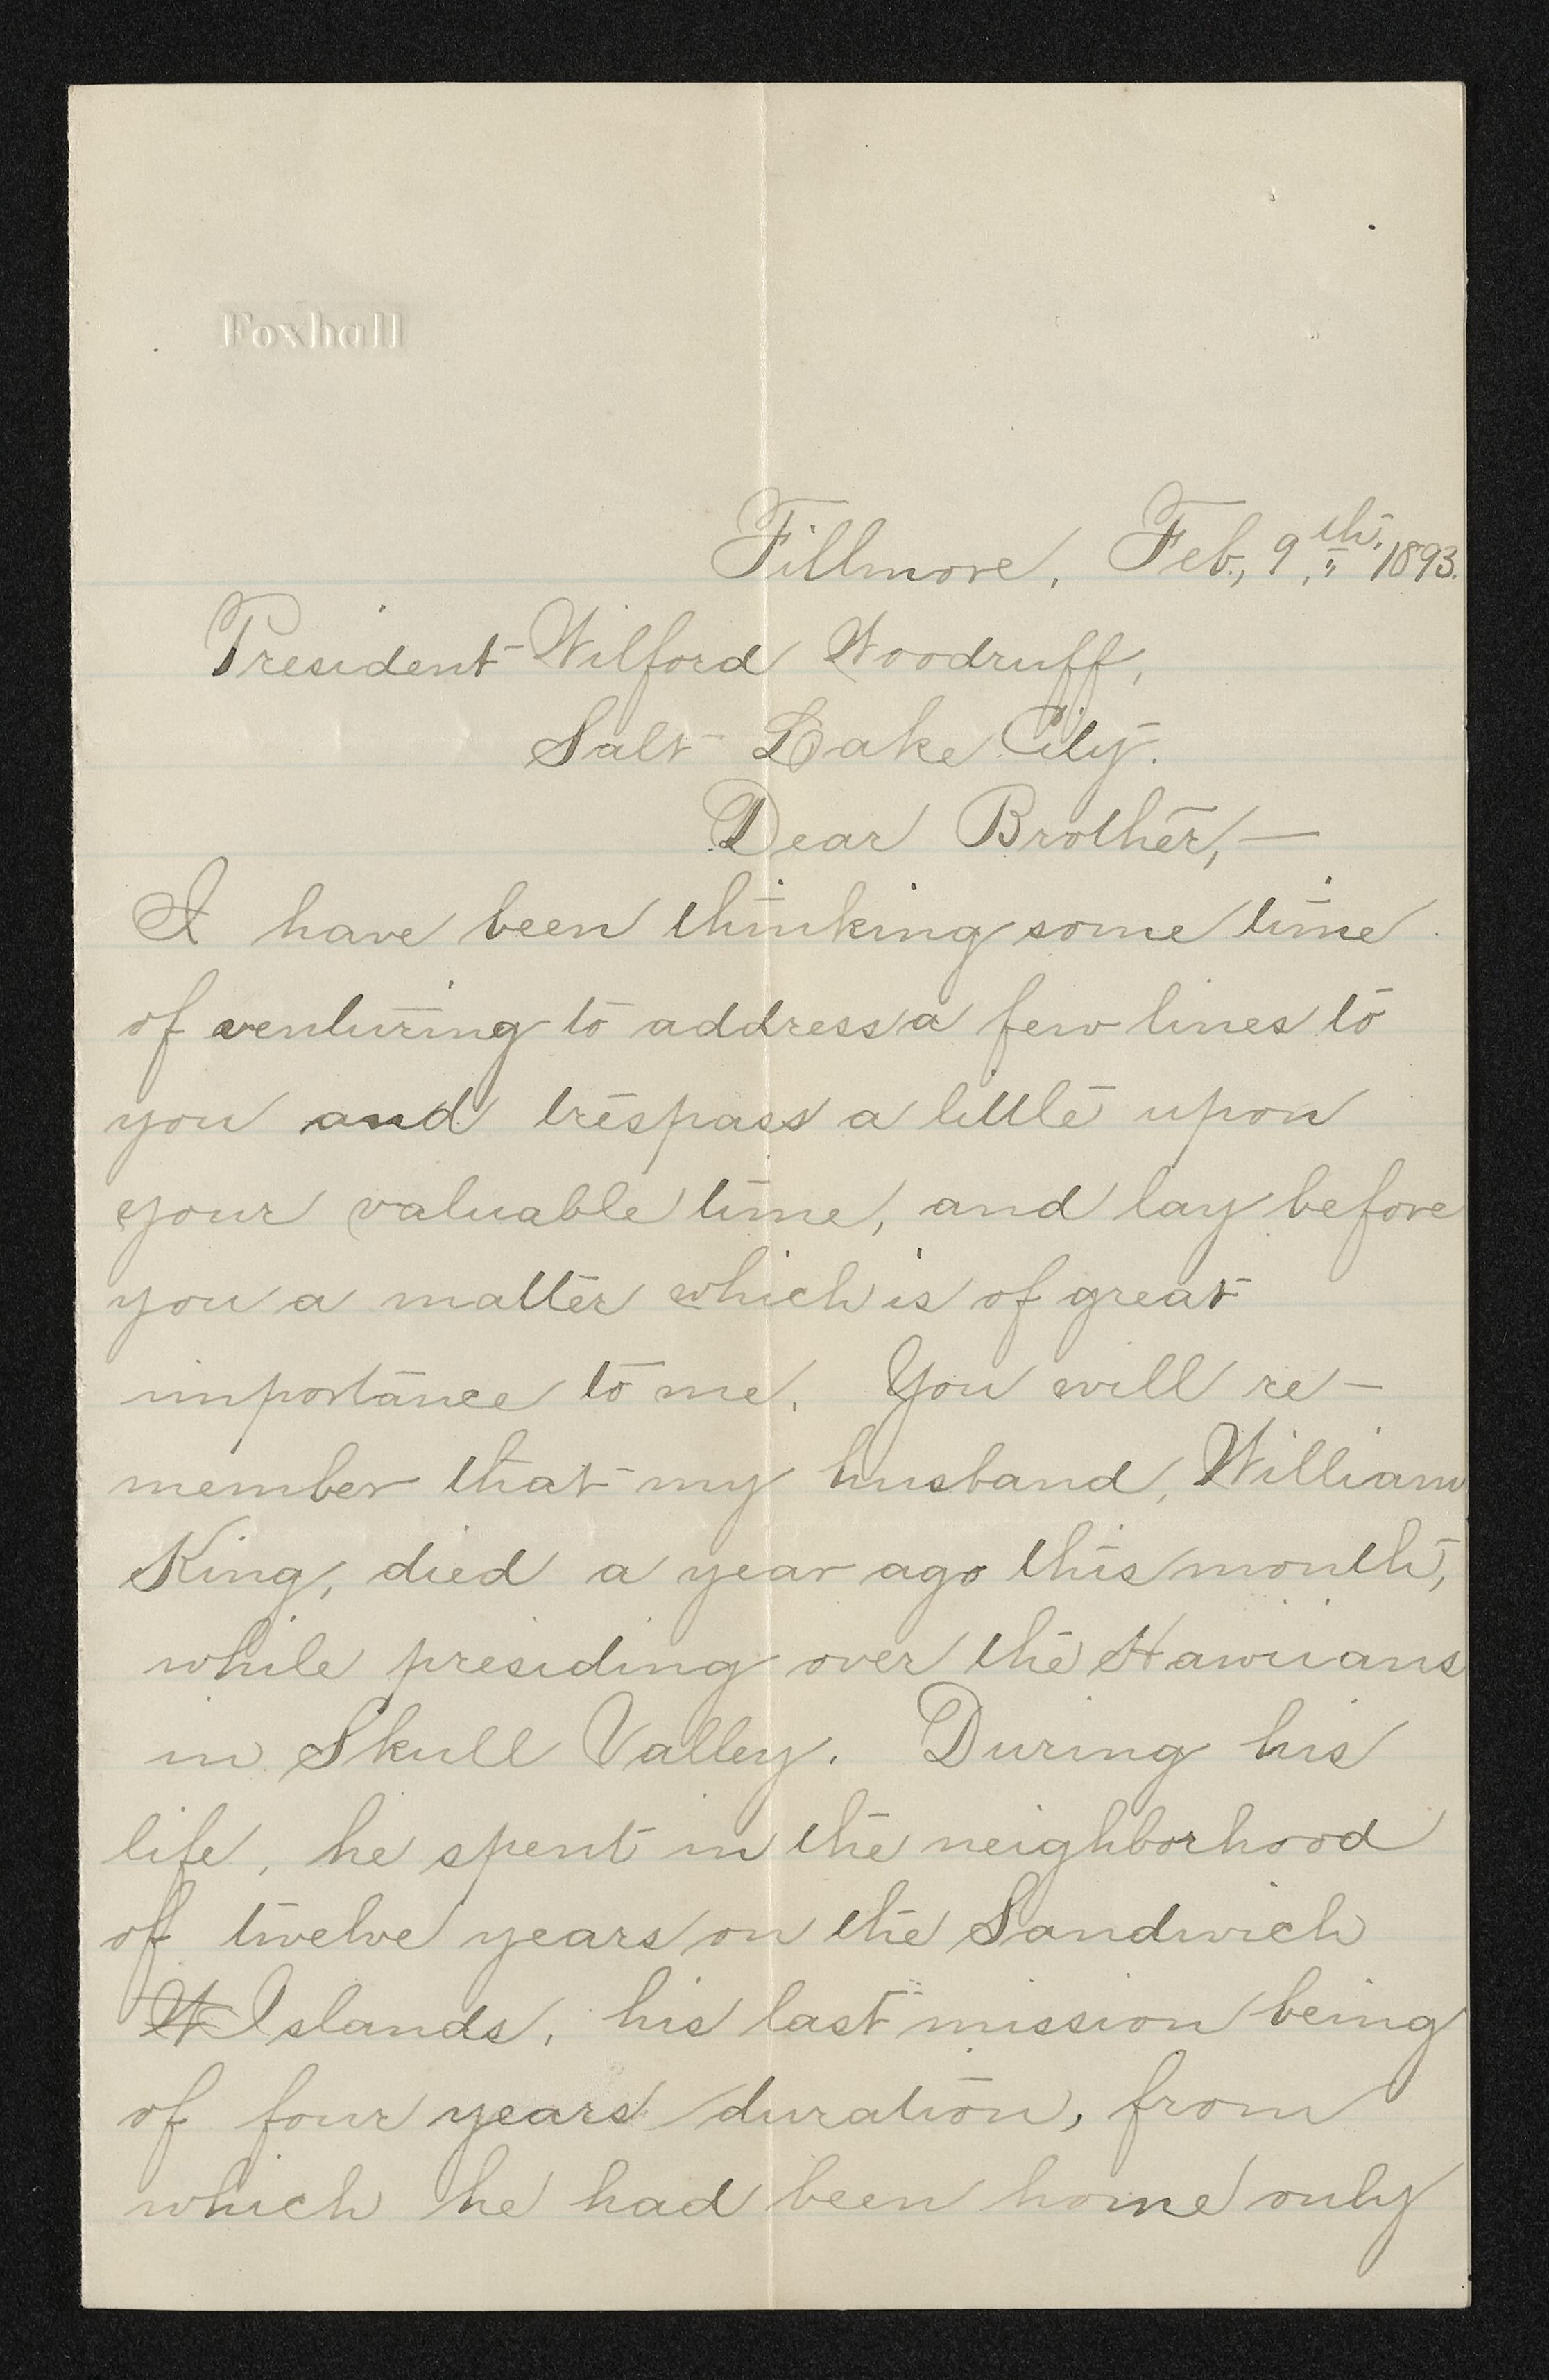 Foxhall
Fillmore, Feb., 9th, 1893.
President Wilford Woodruff,
Salt Lake City.
Dear Brother,—
I have been thinking some time
of venturing to address a few lines to
you and trespass a little upon
your valuable time, and lay before
you a matter which is of great
importance to me. You will re-
member that my husband, William
King, died a year ago this month,
while presiding over the Hawiians
in Skull Valley. During his
life, he spent in the neighborhood
of twelve years on the Sandwich
Islands, his last mission being
of four years duration, from
which he had been home only